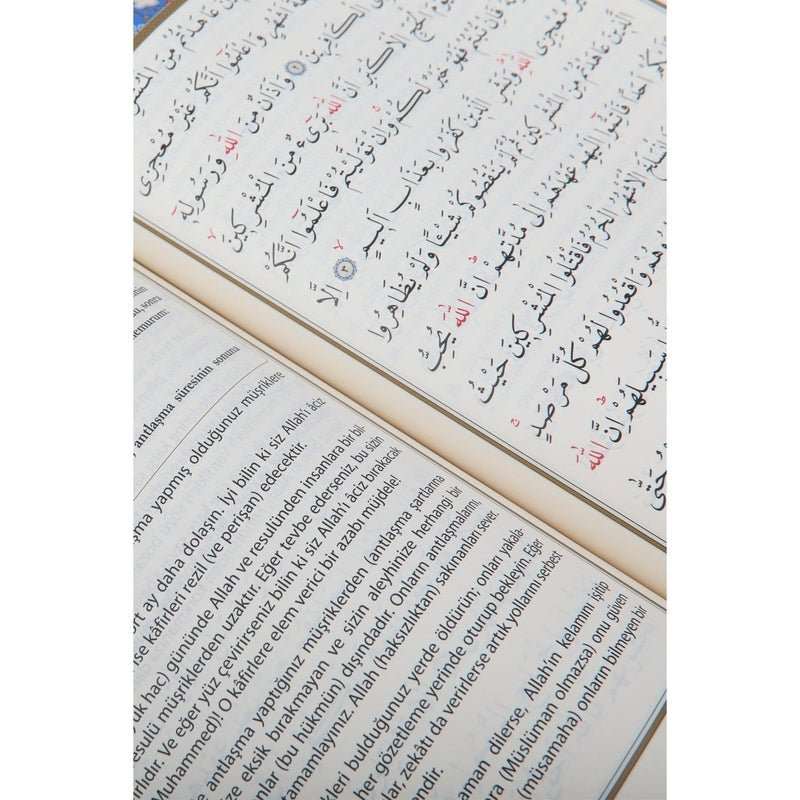 عَاهَدْتُمْ مِنَ الْمُشْرِ
وَاعْلَمُوا اَنَّكُمْ غَيْرُ مُعْجِزِى
الْكَافِرِينَ ٢ وَاَذَانٌ مِنَ اللّٰهِ وَرَسُولِهِ
الْحَجِّ الْاَكْبَرِ اَنَّ اللّٰهَ بَرِىءٌ مِنَ الْمُشْرِكِينَ
فَاِنْ تُبْتُمْ فَهُوَ خَيْرٌ لَكُمْ وَاِنْ تَوَلَّيْتُمْ فَاعْلَمُوا اَنَّكُمْ
غَيْرُ مُعْجِزِى اللّٰهِ وَبَشِّرِ الَّذِينَ كَفَرُوا بِعَذَابٍ اَلِيمٍ ٣ اِلَّا
الَّذِينَ عَاهَدْتُمْ مِنَ الْمُشْرِكِينَ ثُمَّ لَمْ يَنْقُصُوكُمْ شَيْـًٔا وَلَمْ يُظَاهِرُوا
اَحَدًا فَاَتِمُّوا اِلَيْهِمْ عَهْدَهُمْ اِلٰى مُدَّتِهِمْ اِنَّ اللّٰهَ يُحِبُّ
انْسَلَخَ الْاَشْهُرُ الْحُرُمُ فَاقْتُلُوا الْمُشْرِكِينَ حَيْثُ
وَاقْعُدُوا لَهُمْ كُلَّ مَرْصَدٍ
سَبِيلَهُمْ اِنَّ اللّٰهَ
حَتّٰى
sonra
memurum:
antlaşma süresinin sonuna
şma yapmış olduğunuz müşriklere
rt ay daha dolaşın. İyi bilin ki siz Allah'ı âciz
ise kâfirleri rezil (ve perişan) edecektir.
yük hac) gününde Allah ve resulünden insanlara bir bil-
esulü müşriklerden uzaktır. Eğer tevbe ederseniz, bu sizin
rlıdır. Ve eğer yüz çevirirseniz bilin ki siz Allah'ı âciz bırakacak
Muhammed)! O kâfirlere elem verici bir azabı müjdele!
e antlaşma yaptığınız müşriklerden (antlaşma şartlarına
ize eksik bırakmayan ve sizin aleyhinize herhangi bir
nlar (bu hükmün) dışındadır. Onların antlaşmalarını,
tamamlayınız. Allah (haksızlıktan) sakınanları sever.
kleri bulduğunuz yerde öldürün; onları yakala-
her gözetleme yerinde oturup bekleyin. Eğer
lar, zekâtı da verirlerse artık yollarını serbest
endir.
aman dilerse, Allah'ın kelamını işitip
ra (Müslüman olmazsa) onu güven
(müsamaha) onların bilmeyen bir